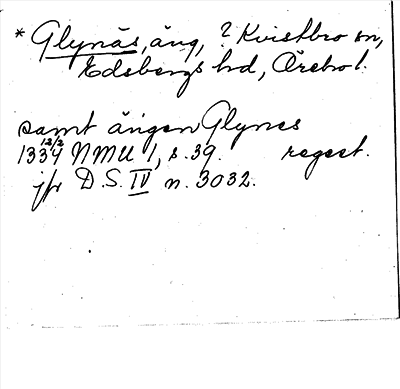 * Glynäs, äng, ? Kvistbro sn,
Edsbergs hd, Örebro l.
samt ängen Glynes
1334 12/2 NMU 1, s. 39. regest.
jfr D.S. IV n. 3032.